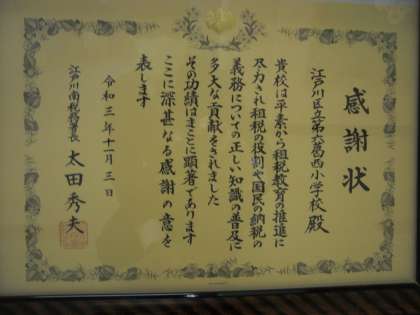 感謝状
江戸川区立第六葛西小学校 殿
貴校は平素から租税教育の推進に
尽力され租税の役割や国民の納税の
義務についての正しい知識の普及に
多大な貢献をされました
その功績はまことに顕著であります
ここに深甚なる感謝の意を
表します
令和三年十一月三日
江戸川南税務署長 太田秀夫